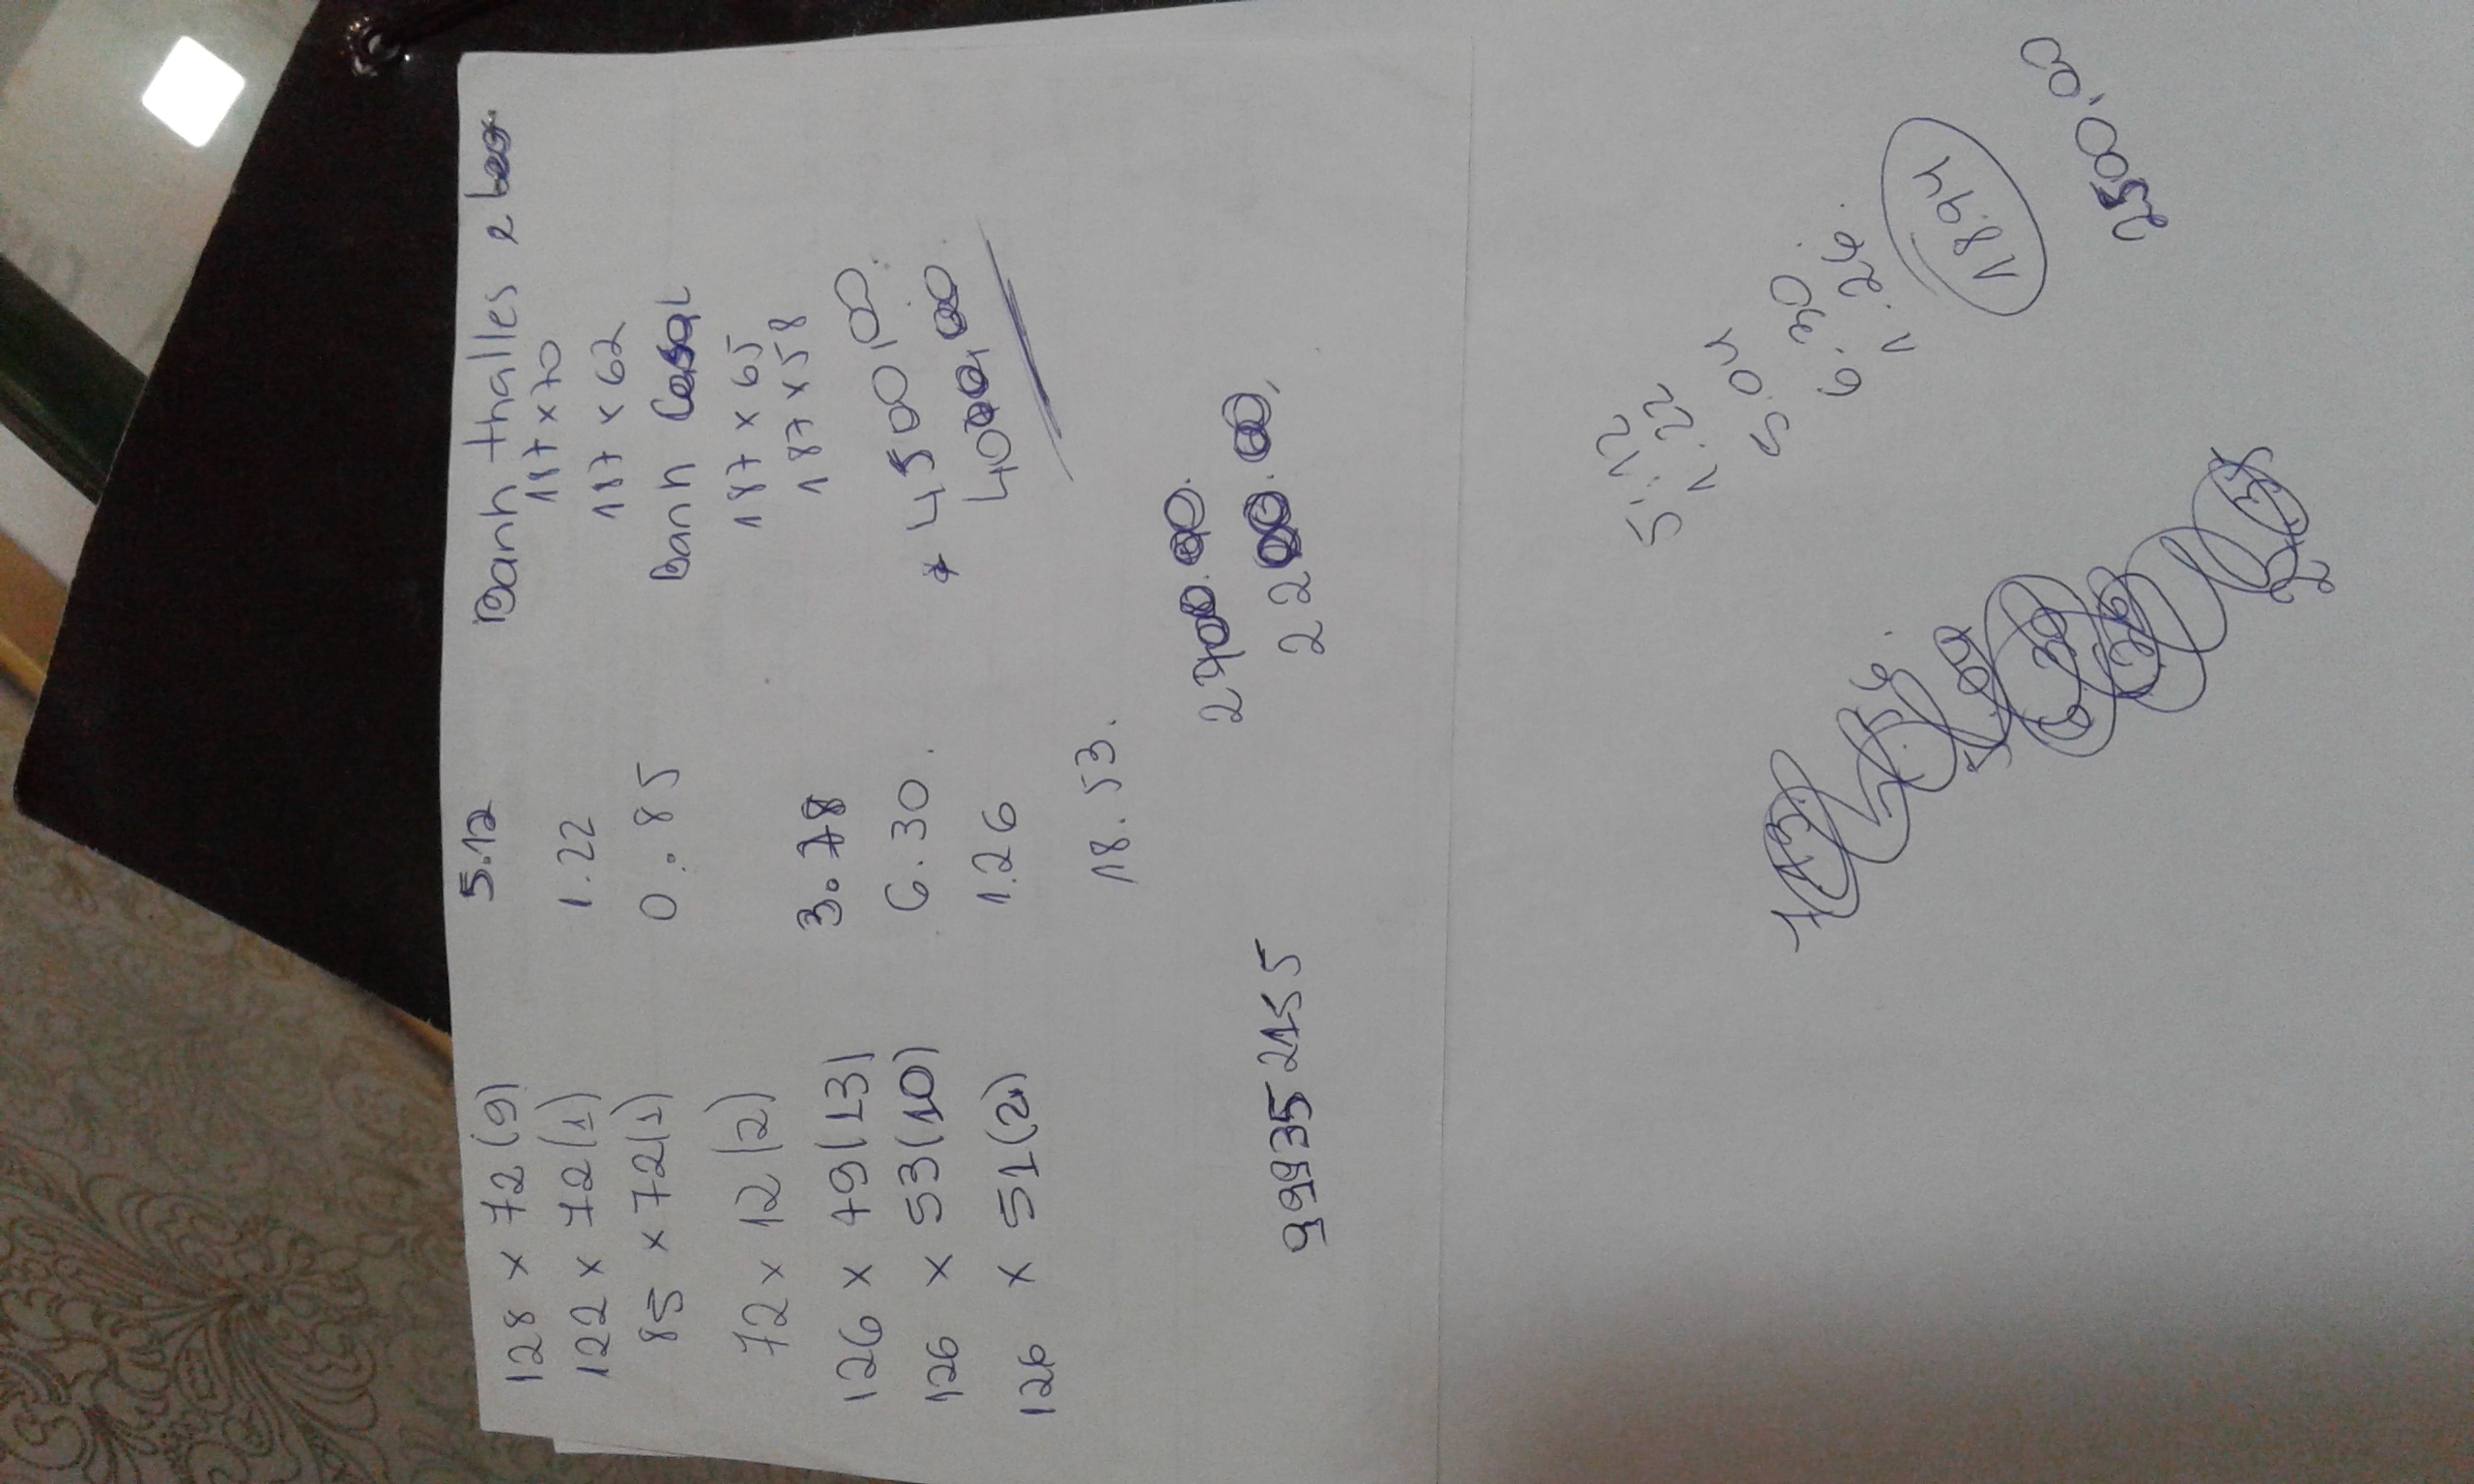 128 x 72 (9) 5.12
122 x 72 (1) 1.22
85 x 72 (1) 0.85
72 x 12 (2)
126 x 49 (13) 3.78
126 x 53 (10) 6.30.
126 x 51 (2) 1.26
18.53.
Banh thalles e
187 x 70
187 x 62
Banh Casal
187 x 65
187 x 58
* 4500,00
4000,00
2700.00.
2200.00,
99352155
5.12
1.22
5.04
6.30
1.26.
18.94
2500,00